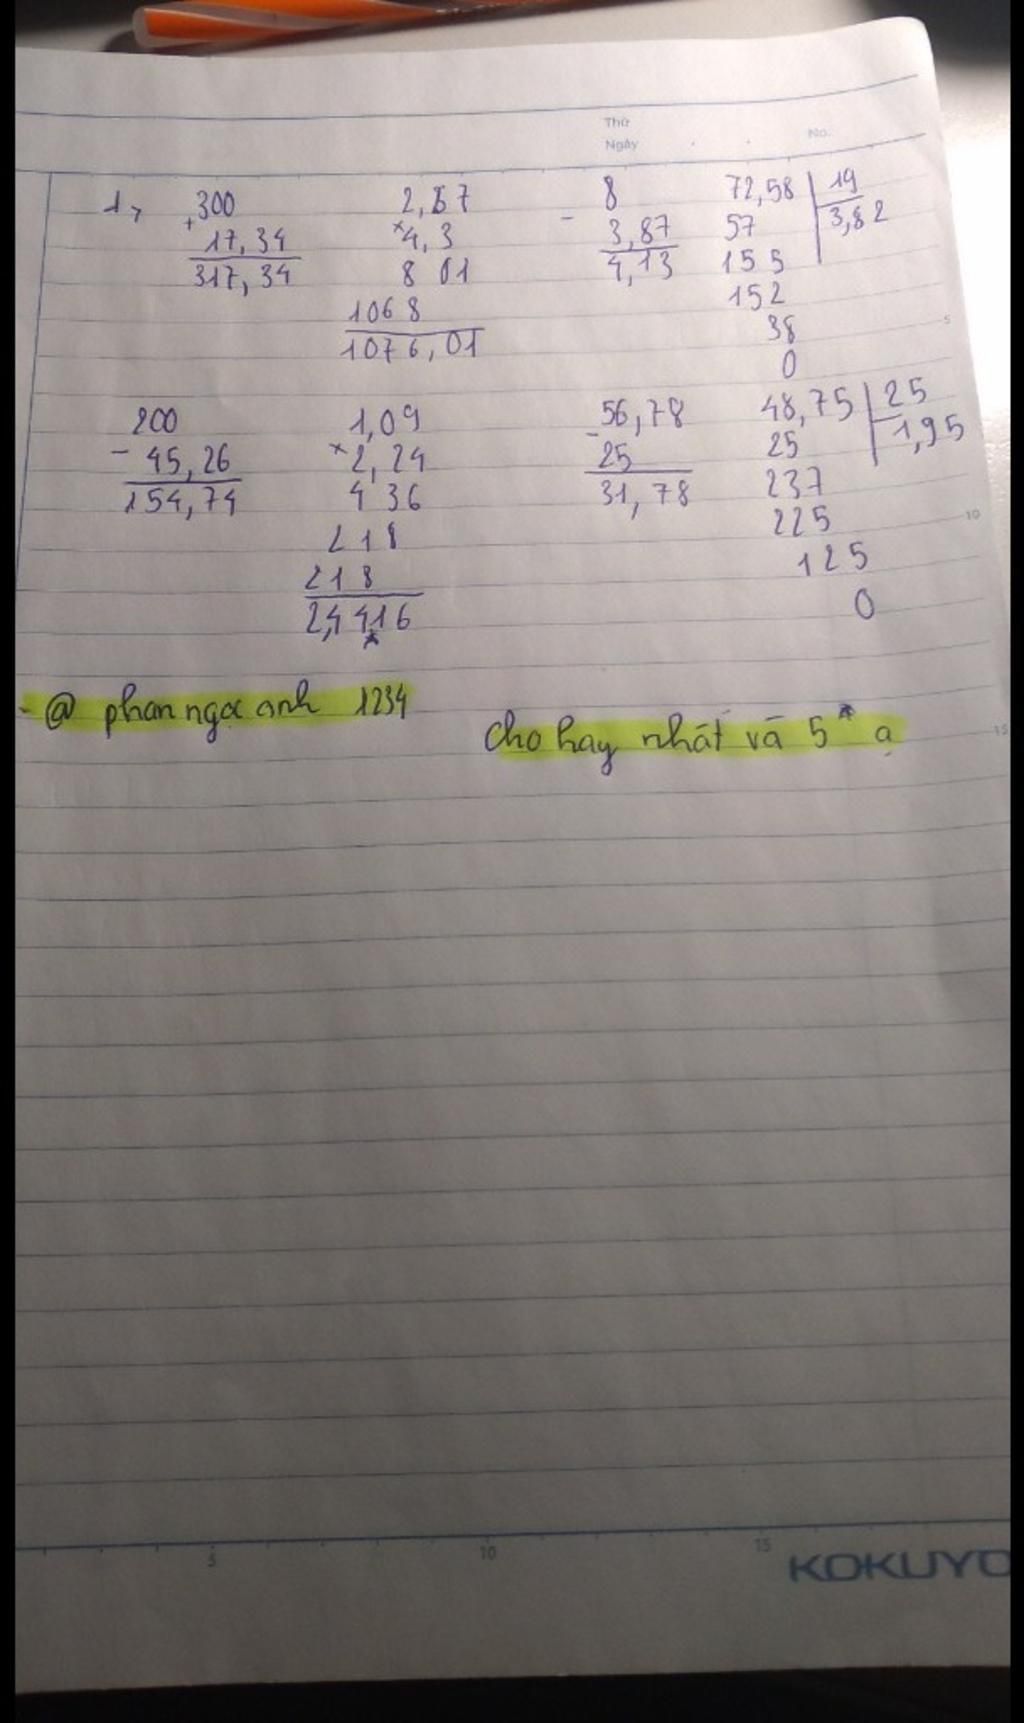 Thứ
Ngày
No.
1, 300 2,67 8 72,58 19
+ 17,34 × 4,3 - 3,87 57 3,82
317,34 8 01 4,13 155
1068 152
1076,01 38
0
200 1,09 56,78 48,75 25
- 45,26 × 2,24 - 25 25 1,95
154,74 4 36 31,78 237
218 225
218 125
2,4416 0
5
10
15
- @ phan ngoc anh 1234
Cho hay nhất và 5* ạ
5 10 15
KOKUYO